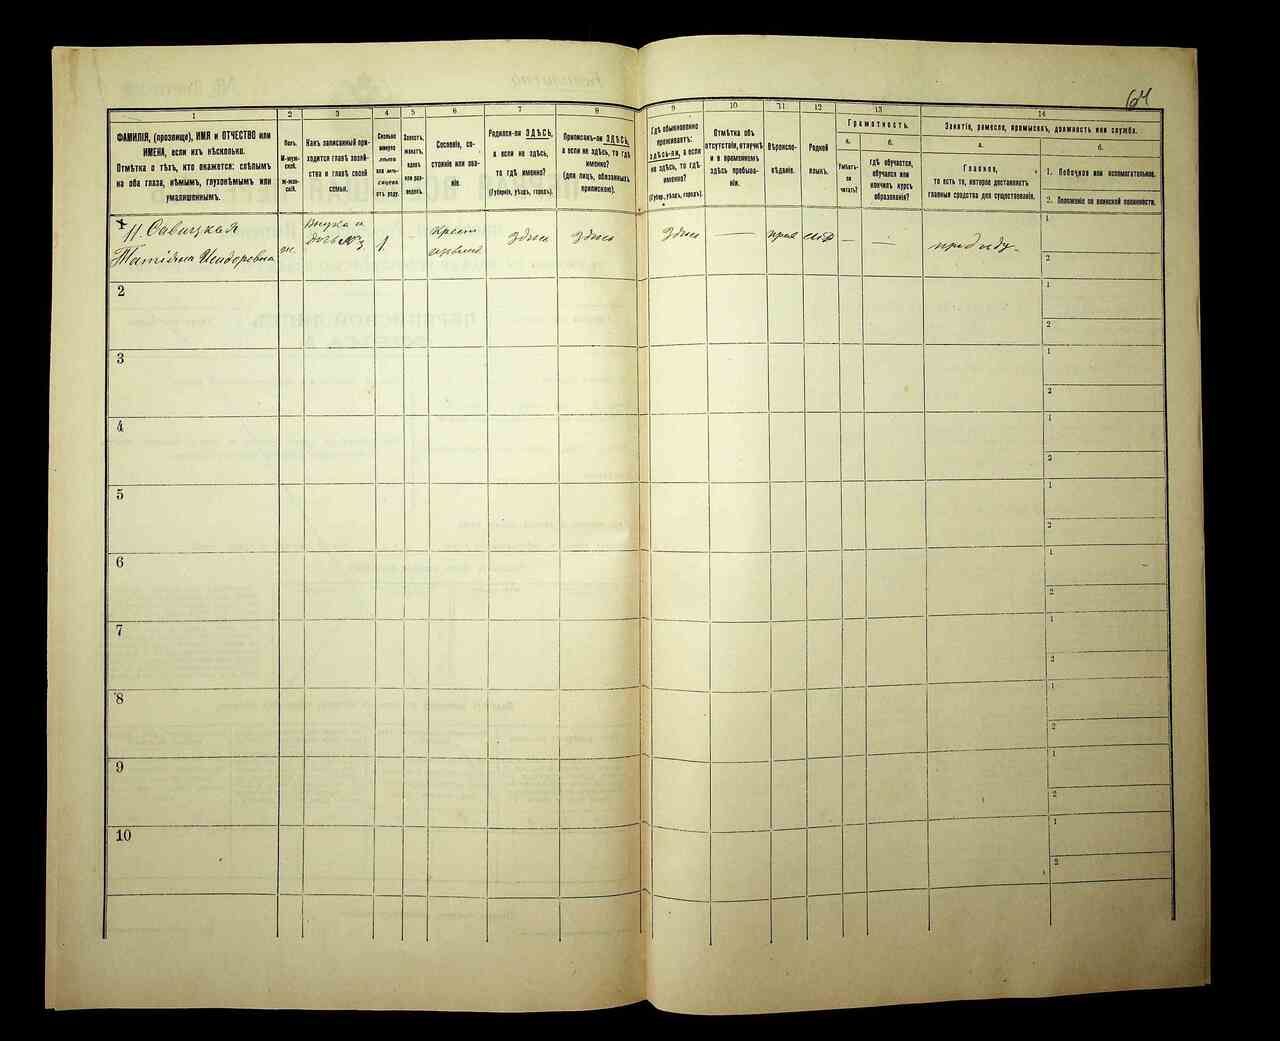 64
1
2
3
4
5
6
7
8
9
10
11
12
13
14
ФАМИЛІЯ, (прозвище), ИМЯ и ОТЧЕСТВО или
ИМЕНА, если ихъ нѣсколько.
Отмѣтка о тѣхъ, кто окажется: слѣпымъ
на оба глаза, нѣмымъ, глухонѣмымъ или
умалишеннымъ.
Полъ.
М-муж-
ской.
Ж-жен-
скій.
Какъ записанный при-
ходится главѣ хозяй-
ства и главѣ своей
семьи.
Сколько
минуло
лѣтъ
или мѣ-
сяцевъ
отъ роду.
Холостъ,
женатъ,
вдовъ
или раз-
веденъ.
Сословіе, со-
стояніе или зва-
ніе.
Родился-ли ЗДѢСЬ,
а если не здѣсь,
то гдѣ именно?
(Губернія, уѣздъ, городъ).
Приписанъ-ли ЗДѢСЬ,
а если не здѣсь, то гдѣ
именно?
(для лицъ, обязанныхъ
припискою).
Гдѣ обыкновенно
проживаетъ:
ЗДѢСЬ-ЛИ, а если
не здѣсь, то гдѣ
именно?
(Губерн., уѣздъ, городъ).
Отмѣтка объ
отсутствіи, отлучкѣ
и о временномъ
здѣсь пребыва-
ніи.
Вѣроиспо-
вѣданіе.
Родной
языкъ.
Грамотность.
а.
Умѣетъ-
ли
читать?
б.
гдѣ обучается,
обучался или
кончилъ курсъ
образованія?
Занятіе, ремесло, промыселъ, должность или служба.
а.
Главное,
то есть то, которое доставляетъ
главныя средства для существованія.
б.
1. Побочное или вспомогательное.
2. Положеніе по воинской повинности.
11. Савицкая
Татіяна Исидоровна
ж.
Внука и
дочь №3
1
Крест
здѣсь
здѣсь
здѣсь
—
прав
—
—
1
2
2
1
2
3
1
2
4
1
2
5
1
2
6
1
2
7
1
2
8
1
2
9
1
2
10
1
2